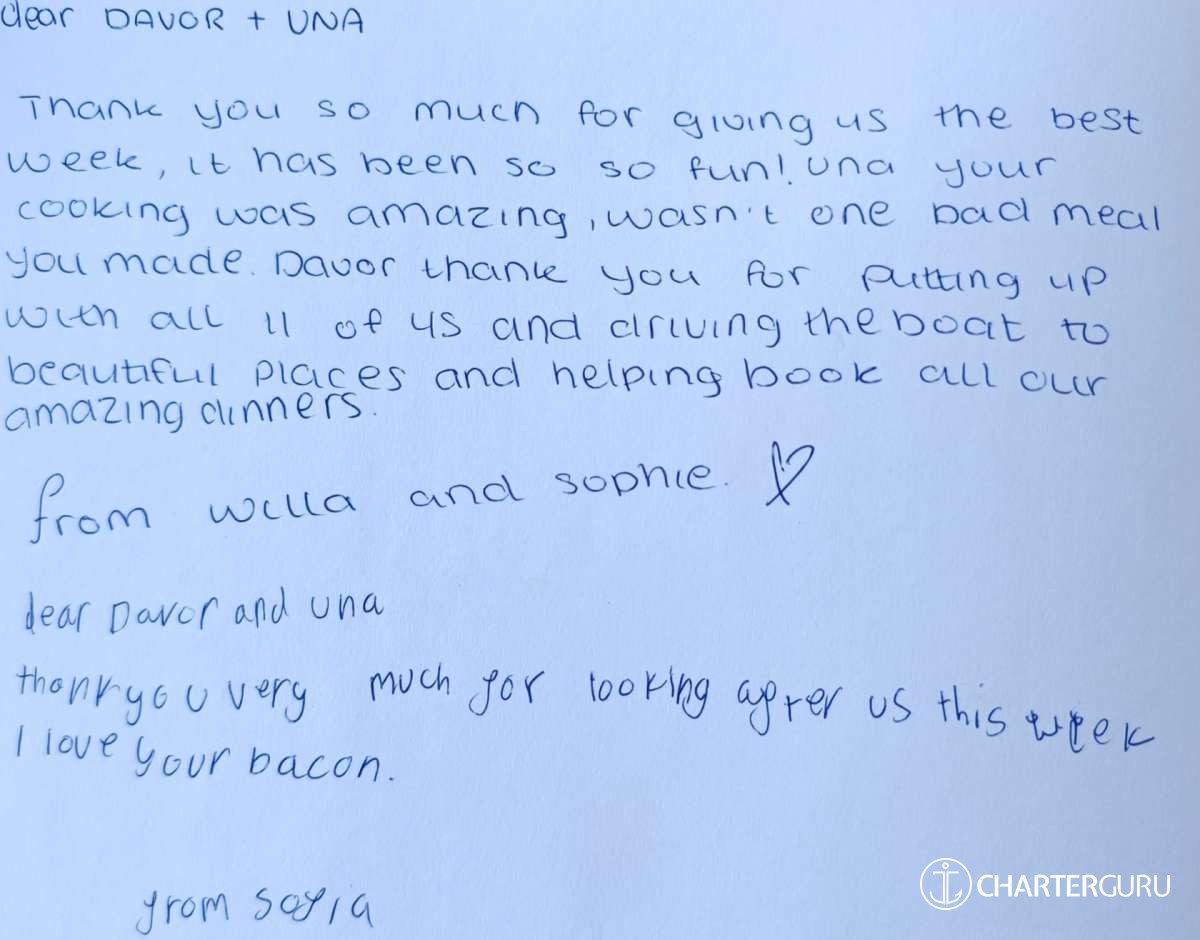 dear DAVOR + UNA
Thank you so much for giving us the best
week, it has been so so fun! Una your
cooking was amazing, wasn't one bad meal
you made. Davor thank you for putting up
with all 11 of us and driving the boat to
beautiful places and helping book all our
amazing dinners.
from willa and sophie.
dear Davor and una
thank you very much for looking after us this week
I love your bacon.
from Sofia
CHARTERGURU